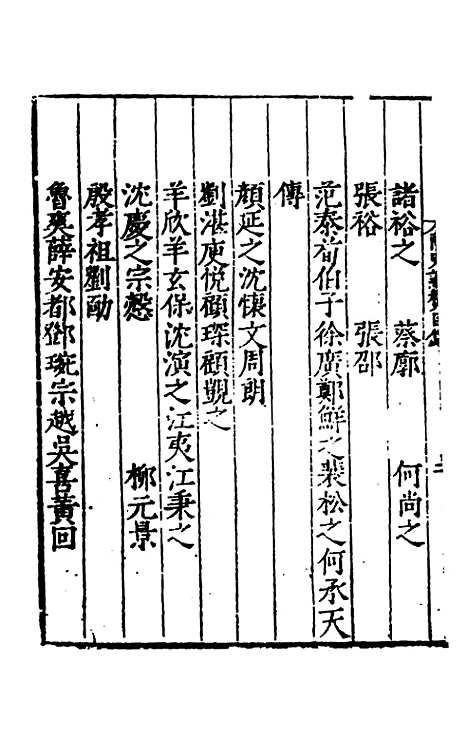 諸裕之 蔡廓 何尚之
張裕 張邵
范泰荀伯子徐廣鄭鮮之裴松之何承天
傳
顏延之沈懷文周朗
劉湛庾悅顧琛顧覬之
羊欣羊玄保沈演之江夷江秉之
沈慶之宗慤 柳元景
殷孝祖劉勔
魯爽薛安都鄧琬宗越吳喜黃回